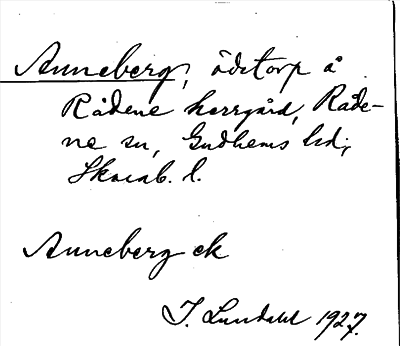 Anneberg, ödetorp å
Rådene herrgård, Råde-
ne sn, Gudhems hd,
Skarab. l.
Anneberg ek
I. Lundahl 1927.